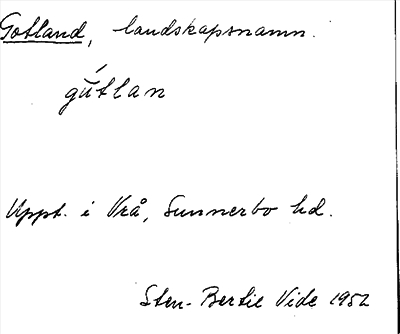 Gotland, landskapsnamn.
gŭ́tlan
Uppt. i Vrå, Sunnerbo hd.
Sten-Bertil Vide 1952